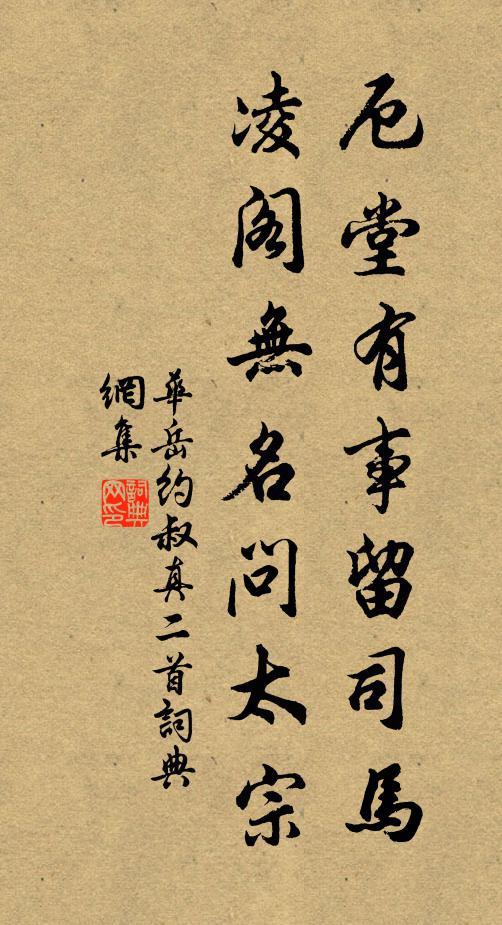 卮堂有事留司馬
凌閣無名問太宗
華岳約叔真二首詞典
網集
詞典
网印